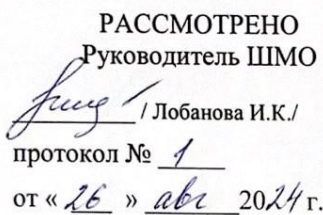 РАССМОТРЕНО
Руководитель ШМО
/ Лобанова И.К./
протокол № 1
от « 26 » авг 2024 г.